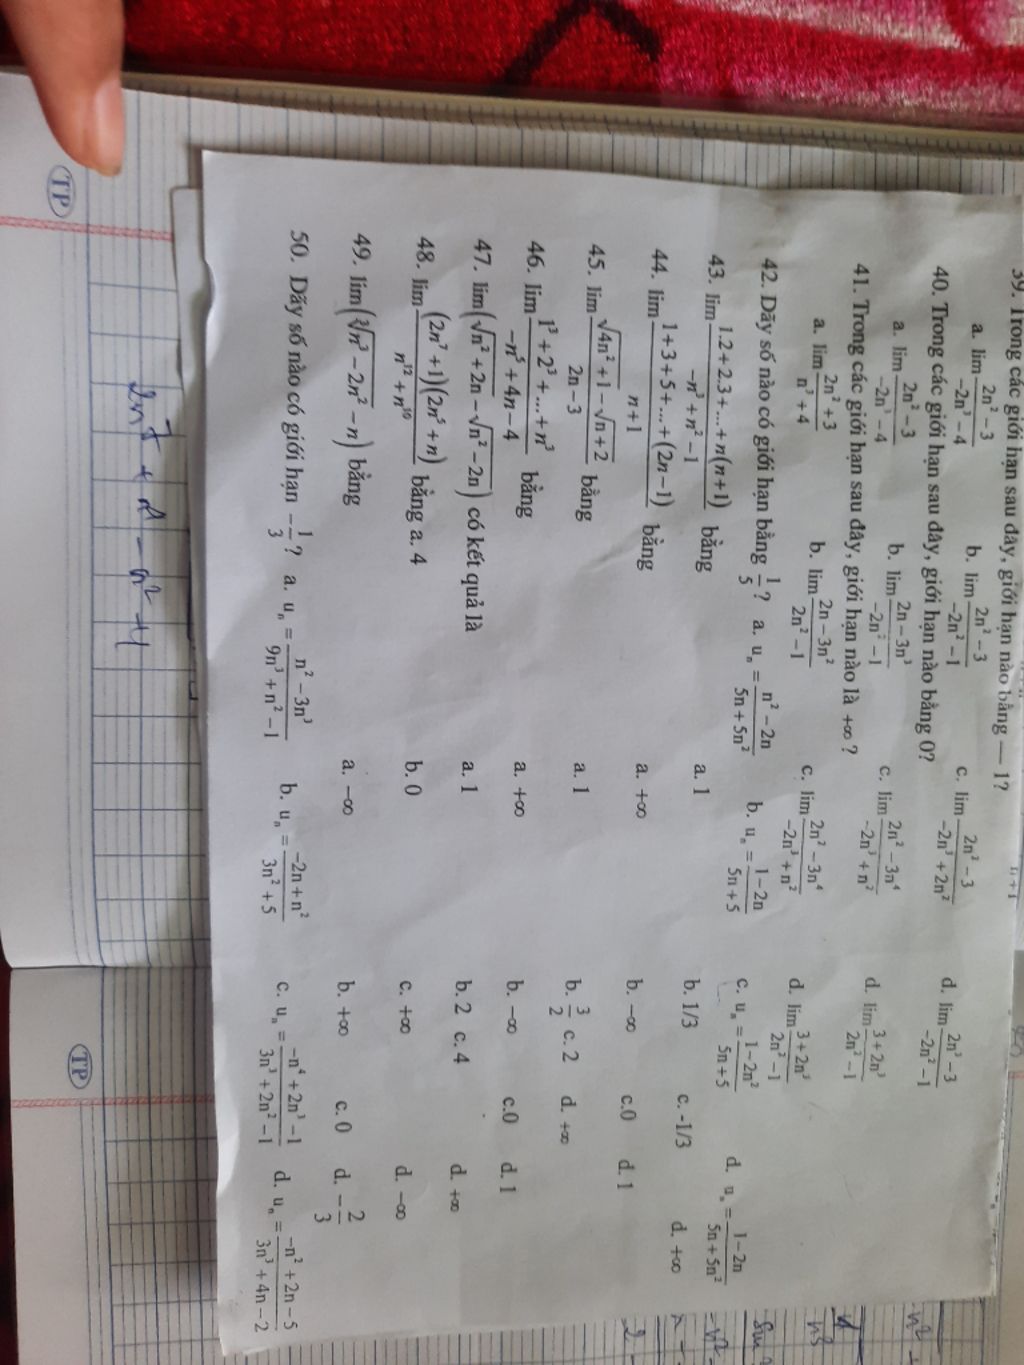 39. Trong các giới hạn sau đây, giới hạn nào bằng — 1?
a. lim (2n² − 3)/(−2n³ − 4) b. lim (2n² − 3)/(−2n² − 1) c. lim (2n² − 3)/(−2n³ + 2n²) d. lim (2n³ − 3)/(−2n² − 1)
40. Trong các giới hạn sau đây, giới hạn nào bằng 0?
a. lim (2n² − 3)/(−2n³ − 4) b. lim (2n − 3n³)/(−2n² − 1) c. lim (2n² − 3n⁴)/(−2n³ + n²) d. lim (3 + 2n³)/(2n² − 1)
41. Trong các giới hạn sau đây, giới hạn nào là +∞ ?
a. lim (2n² + 3)/(n³ + 4) b. lim (2n − 3n²)/(2n² − 1) c. lim (2n² − 3n⁴)/(−2n³ + n²) d. lim (3 + 2n³)/(2n² − 1)
42. Dãy số nào có giới hạn bằng 1/5 ? a. uₙ = (n² − 2n)/(5n + 5n²) b. uₙ = (1 − 2n)/(5n + 5) c. uₙ = (1 − 2n²)/(5n + 5) d. uₙ = (1 − 2n)/(5n + 5n²)
43. lim (1.2 + 2.3 + ... + n(n+1))/(−n³ + n² − 1) bằng a. 1 b. 1/3 c. -1/3 d. +∞
44. lim (1 + 3 + 5 + ... + (2n − 1))/(n + 1) bằng a. +∞ b. −∞ c.0 d. 1
45. lim (√(4n² + 1) − √(n + 2))/(2n − 3) bằng a. 1 b. 3/2 c. 2 d. +∞
46. lim (1³ + 2³ + ... + n³)/(−n⁵ + 4n − 4) bằng a. +∞ b. −∞ c.0 d. 1
47. lim(√(n² + 2n) − √(n² − 2n)) có kết quả là a. 1 b. 2 c. 4 d. +∞
48. lim ((2n⁷ + 1)(2n⁵ + n))/(n¹² + n¹⁰) bằng a. 4 b. 0 c. +∞ d. −∞
49. lim(∛(n³ − 2n²) − n) bằng a. −∞ b. +∞ c. 0 d. −2/3
50. Dãy số nào có giới hạn −1/3 ? a. uₙ = (n² − 3n³)/(9n³ + n² − 1) b. uₙ = (−2n + n²)/(3n² + 5) c. uₙ = (−n⁴ + 2n³ − 1)/(3n³ + 2n² − 1) d. uₙ = (−n² + 2n − 5)/(3n³ + 4n − 2)
TP
TP